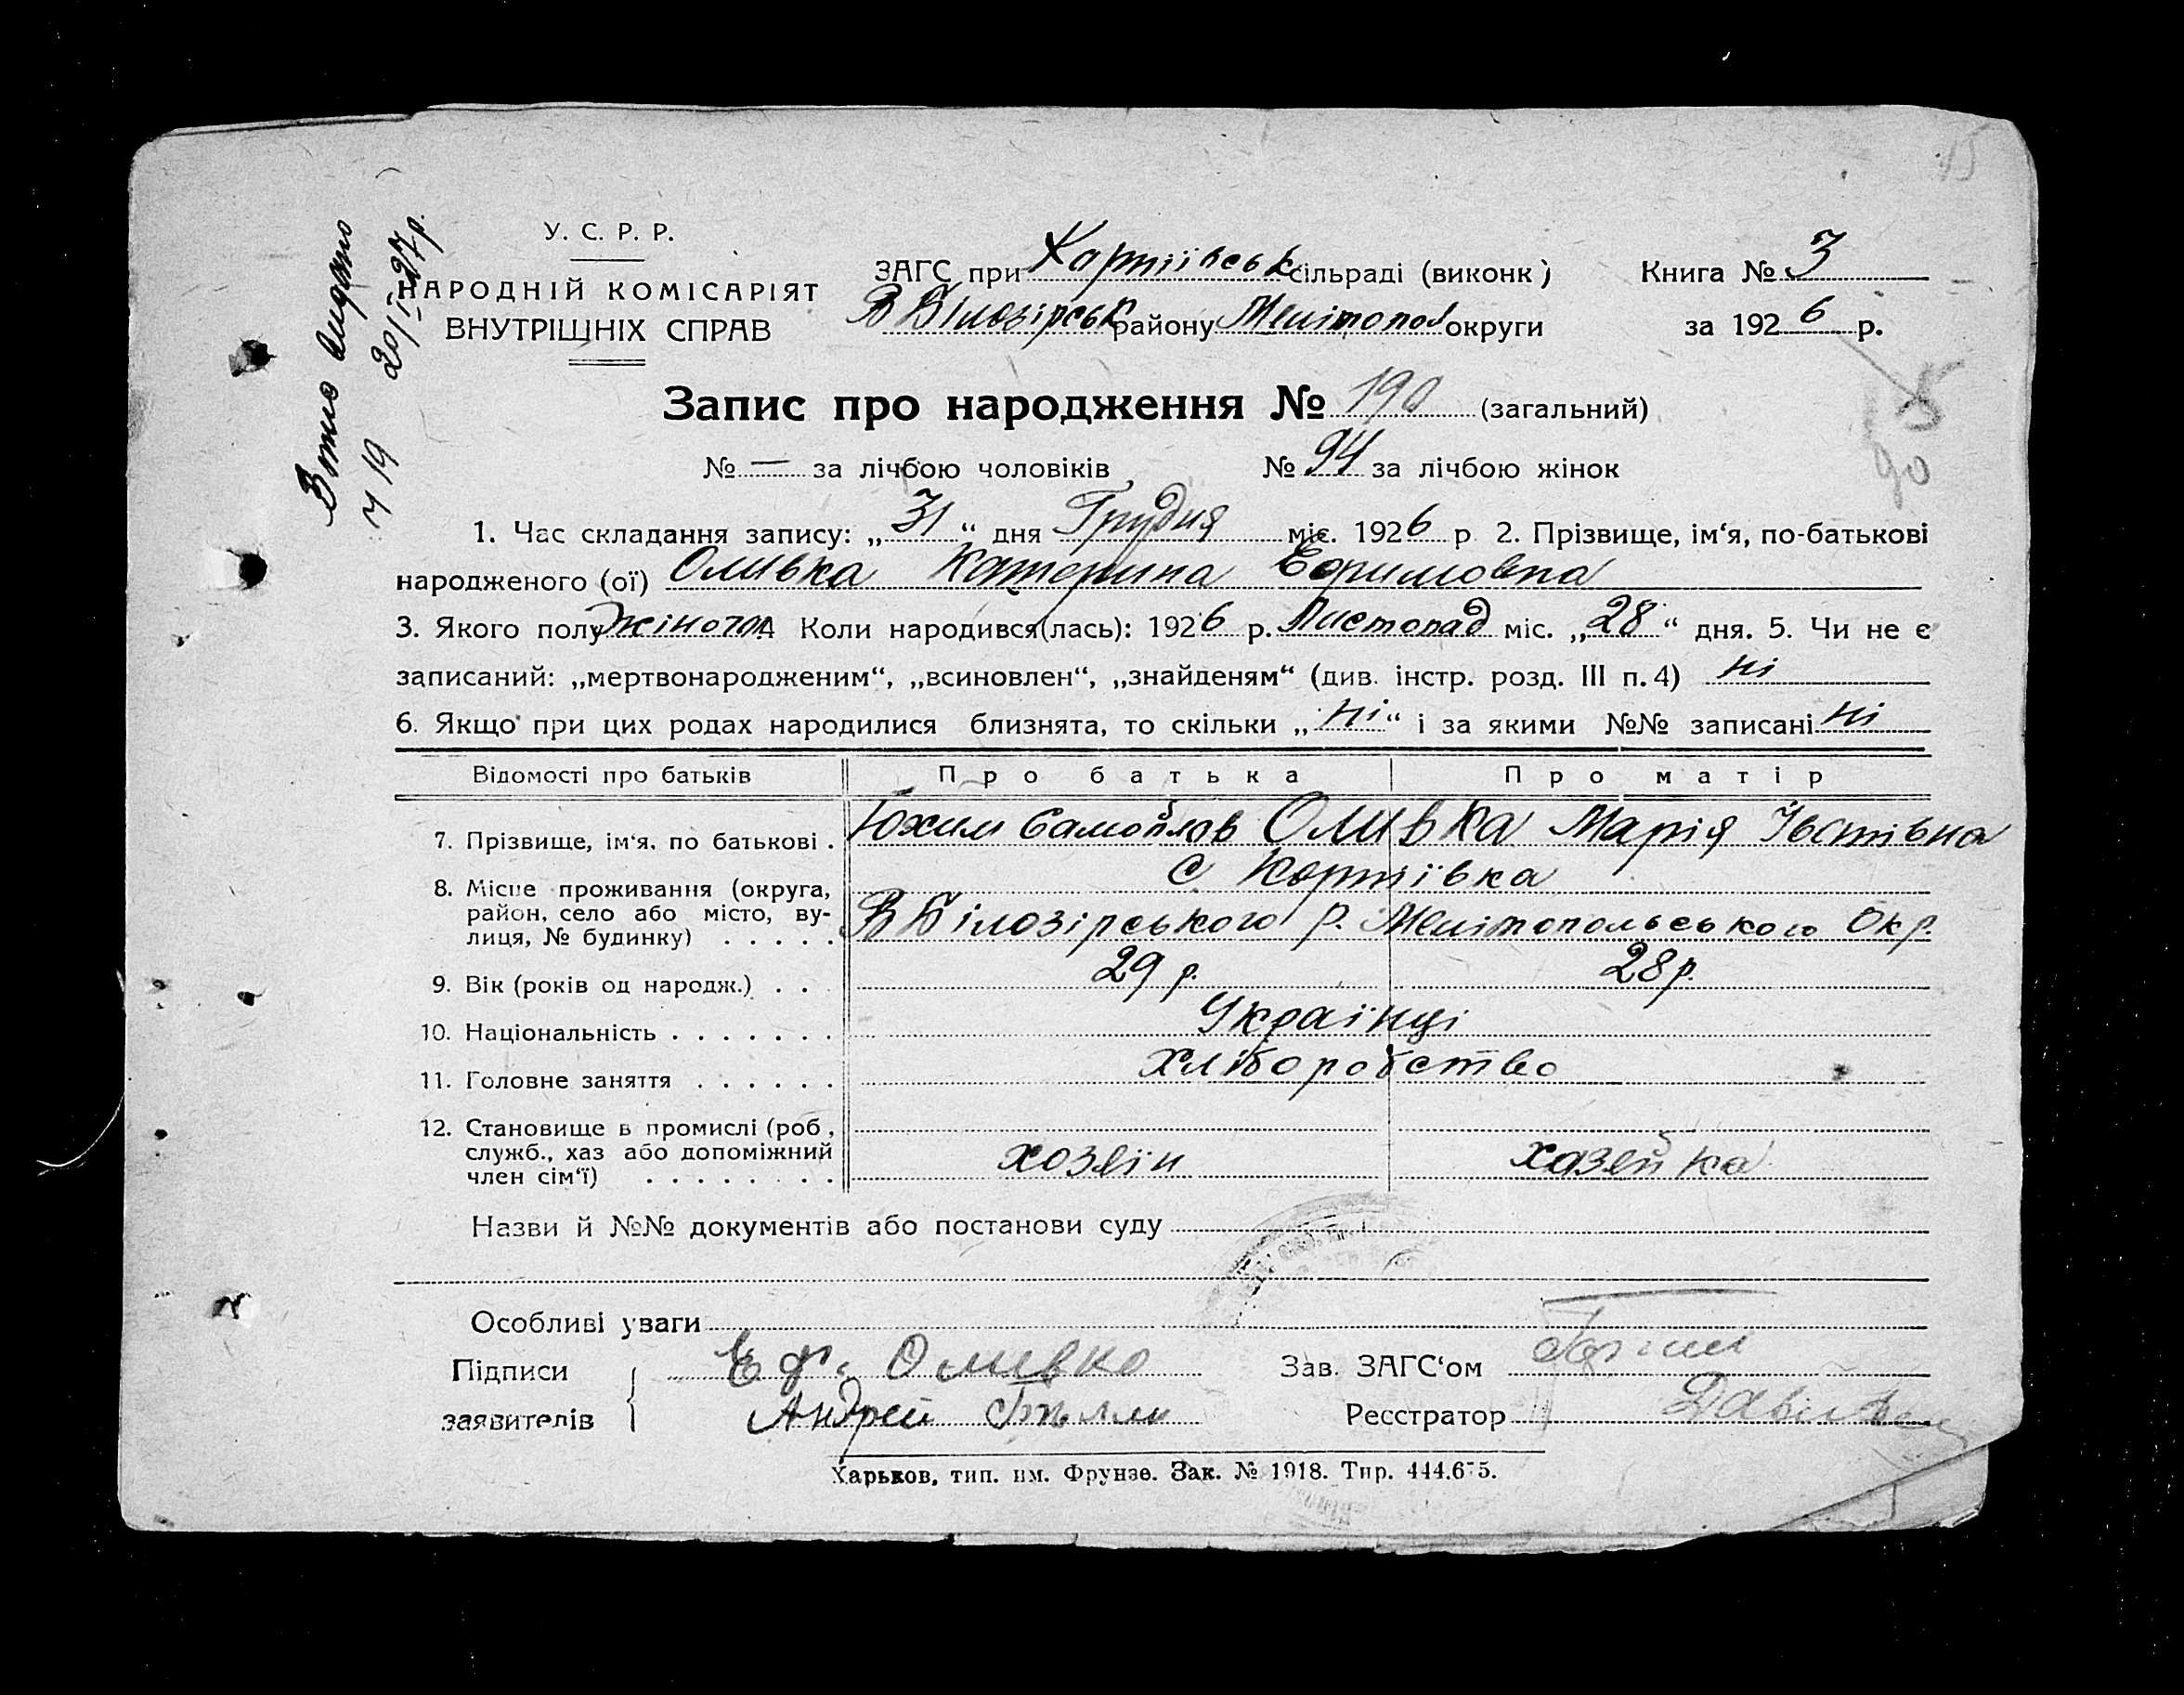 15
У. С. Р. Р.
НАРОДНІЙ КОМІСАРІЯТ
ВНУТРІШНІХ СПРАВ
20/I-27р.
ЗАГС при сільраді (виконк)
Книга № 3
В Білозірськ району Мелітопол округи
за 1926 р.
Запис про народження № 190 (загальний)
90
№ — за лічбою чоловіків № 94 за лічбою жінок
1. Час складання запису: „31“ дня Грудня міс. 1926 р 2. Прізвище, ім‘я, по-батькові
народженого (ої) Оливка Катерина Ефимовна
3. Якого полу жіноча Коли народився(лась): 1926 р. Листопад міс. „28“ дня. 5. Чи не є
записаний: „мертвонародженим“, „всиновлен“, „знайденям“ (див. інстр. розд. III п. 4) ні
6. Якщо при цих родах народилися близнята, то скільки „ні“ і за якими №№ записані ні
Відомості про батьків
Про батька
Про матір
7. Прізвище, ім‘я, по батькові . Юхим Самойлов Оливка Марія
8. Місце проживання (округа, район, село або місто, вулиця, № будинку) . . . . .
с
В Білозірського р. Мелітопольського Окр.
9. Вік (років од народж.) . . 29 р. 28 р.
10. Національність . . . . . . . Українці
11. Головне заняття . . . . . . хліборобство
12. Становище в промислі (роб,
служб., хаз або допоміжний
член сім‘ї) . . . . . . . . хозяїн хазяйка
Назви й №№ документів або постанови суду
Особливі уваги
Підписи
заявителів
Еф. Оливко
Андрей
Зав. ЗАГС‘ом
Ресстратор
Харьков, тип. им. Фрунзе. Зак. № 1918. Тир. 444.675.